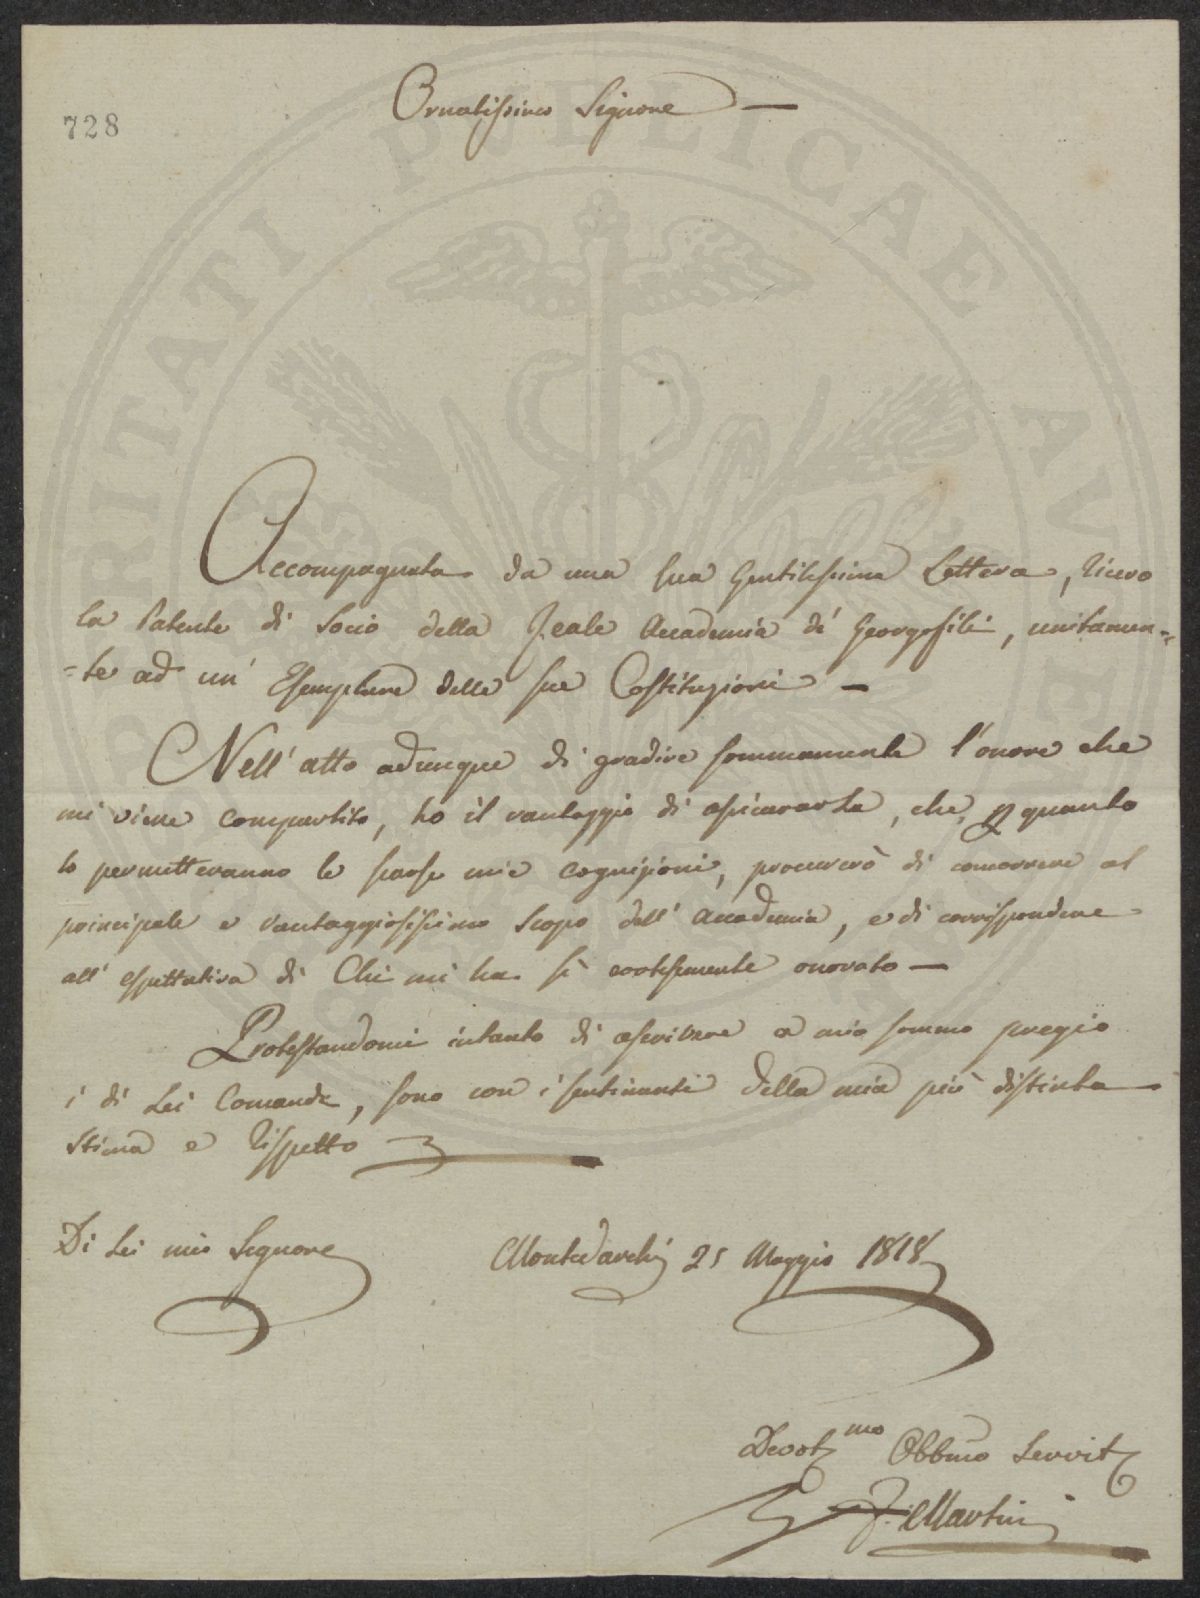 728
Ornatissimo Signore —
Accompagnata da una sua Gentilissima Lettera, ricevo
la Patente di Socio della Reale Accademia dé Georgofili, unitamen=
=te ad un' Esemplare delle sue Costituzioni —
Nell' atto adunque di gradire sommamente l'onore che
mi viene compartito, ho il vantaggio di assicurarla, che, p quanto
lo permetteranno le scarse mie cognizioni, procurerò di concorrere al
principale e vantaggiosissimo scopo dell' Accademia, e di corrispondere
all' espettativa di Chi mi ha sì cortesemente onorato —
Protestandomi intanto di ascrivere a mio sommo pregio
i di Lei Comandi, sono con i sentimenti della mia più distinta
stima e rispetto
Di Lei mio Signore
Montevarchi 25 Maggio 1818
Devotmo Obbmo Servit
F. Martini
PROSPERITATI PUBLICAE AUGENDAE